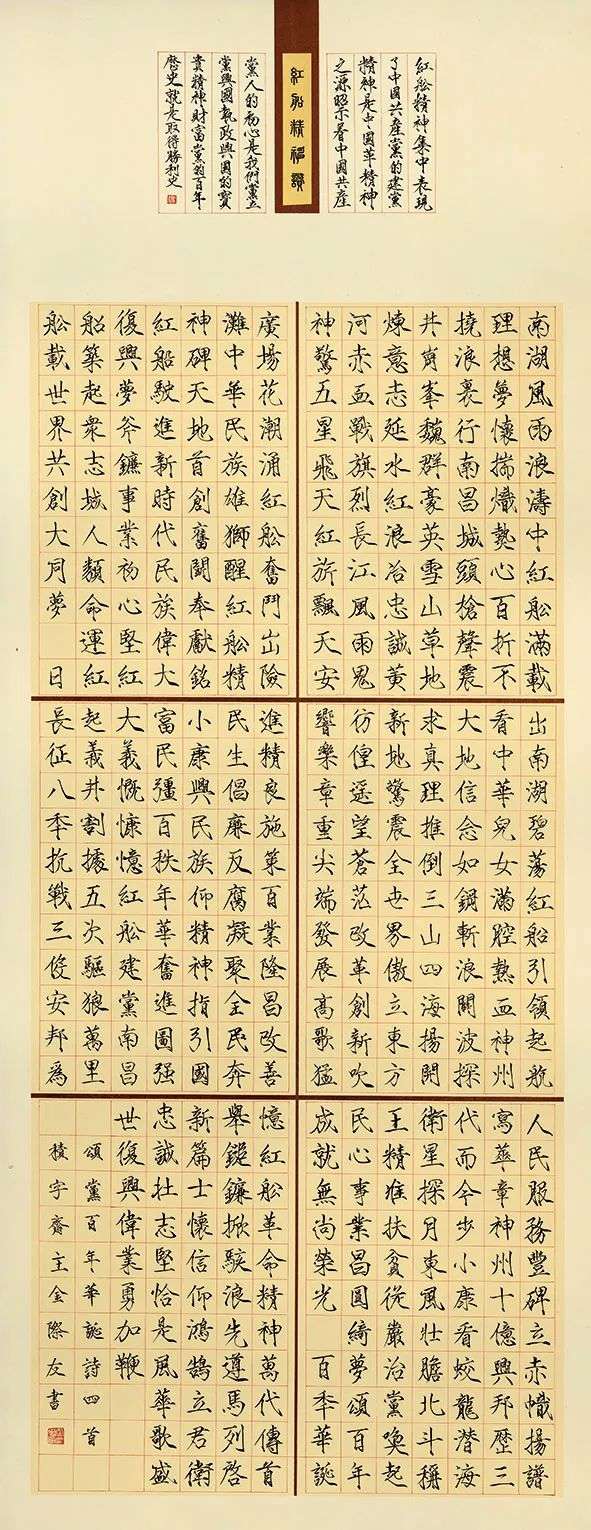 紅舩精神集中表現
了中國共產黨的建黨
精神是中國革精神
之源昭示着中國共產
紅舩精神讚
黨人的初心是我們黨立
黨興國執政興國的寶
貴精神財富黨的百年
歷史就是取得勝利史
南湖風雨浪濤中紅舩滿載
理想夢懷揣熾熱心百折不
撓浪裏行南昌城頭槍聲震
井崗峯巍群豪英雪山草地
煉意志延水紅浪冶忠誠黃
河赤血戰旗烈長江風雨鬼
神驚五星飛天紅旂飄天安
廣場花潮涌紅舩奮鬥出險
灘中華民族雄獅醒紅舩精
神碑天地首創奮鬪奉獻銘
紅船駛進新時代民族偉大
復興夢斧鐮事業初心堅紅
船築起衆志城人類命運紅
舩載世界共創大同夢　日
出南湖碧蕩紅船引領起航
看中華兒女滿腔熱血神州
大地信念如鋼斬浪闢波探
求真理推倒三山四海揚開
新地驚震全世界傲立東方
彷徨遥望蒼茫改革創新吹
響樂章重尖端發展高歌猛
進精良施策百業隆昌改善
民生倡廉反腐凝聚全民奔
小康興民族仰精神指引國
富民彊百秩年華奮進圖强
大義慨慷憶紅舩建黨南昌
起義井割據五次驅狼萬里
長征八年抗戰三役安邦爲
人民服務豐碑立赤幟揚譜
寫華章神州十億興邦歷三
代而今步小康看蛟龍潜海
衛星探月東風壯膽北斗稱
王精准扶貧從嚴治黨喚起
民心事業昌圓綺夢頌百年
成就無尚榮光　百年華誕
憶紅舩革命精神萬代傳首
舉鎚鐮掀駭浪先遵馬列啓
新篇士懷信仰鴻鵠立君衛
忠誠壯志堅恰是風華歌盛
世復興偉業勇加鞭
頌黨百年華誕詩四首
積字齋主金際友書